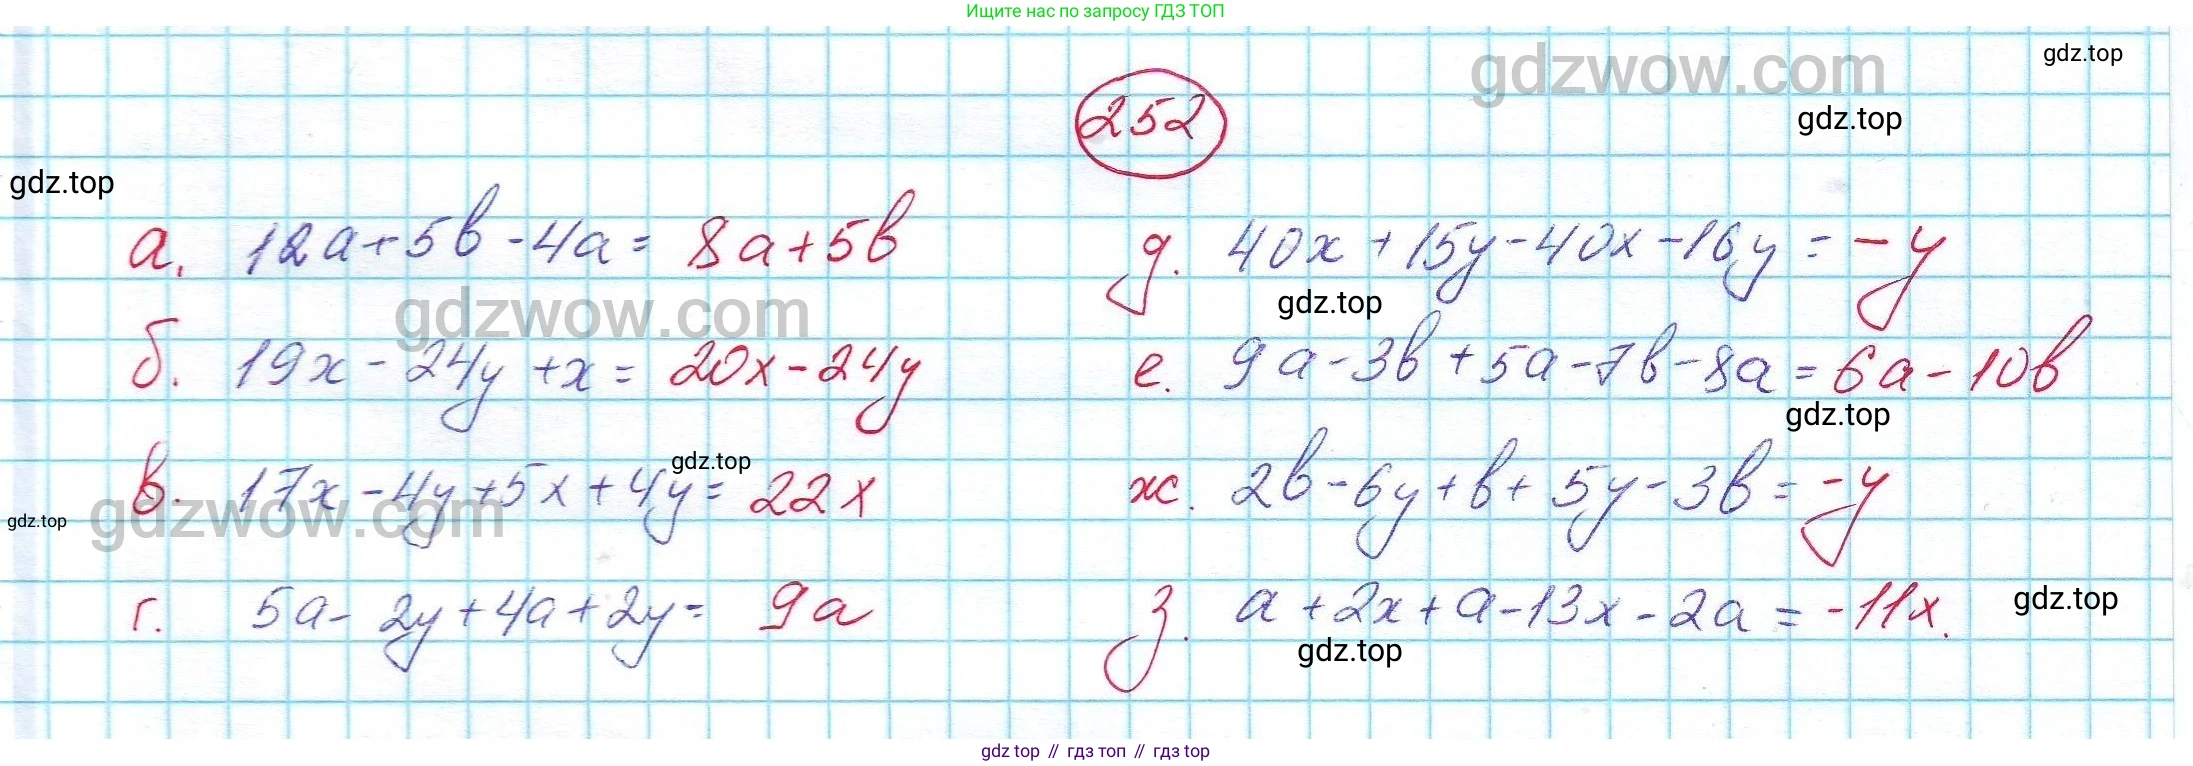 Ищите нас по запросу ГДЗ ТОП
gdzwow.com
gdz.top
252
gdz.top
gdz.top
а. 12a+5b-4a= 8a+5b
д. 40x+15y-40x-16y=-y
gdzwow.com
gdz.top
б. 19x-24y+x= 20x-24y
е. 9a-3b+5a-7b-8a=6a-10b
gdz.top
gdz.top
в. 17x-4y+5x+4y= 22x
ж. 2b-6y+b+5y-3b=-y
gdz.top
gdzwow.com
г. 5a-2y+4a+2y= 9a
з. a+2x+a-13x-2a=-11x.
gdz.top
gdz.top
gdz top // гдз топ // гдз top